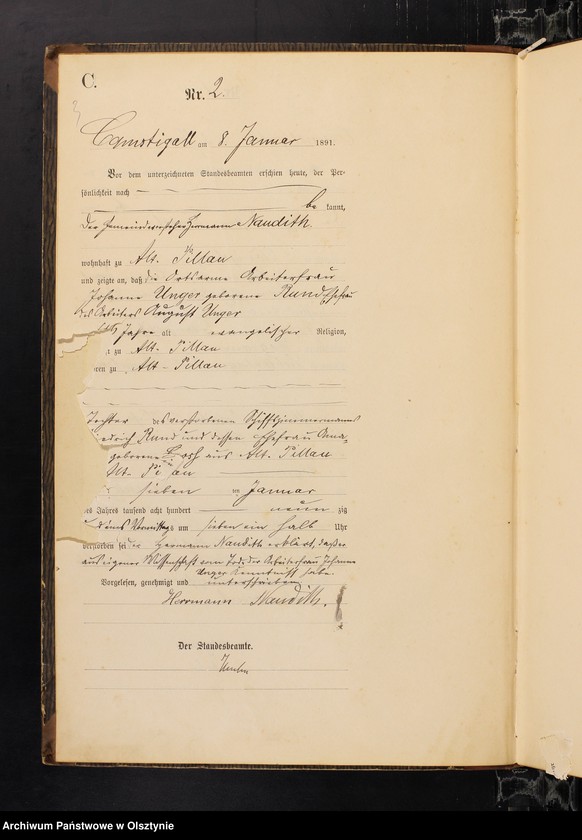 C.
Nr. 2.
Camstigall am 8. Januar 1891.
Vor dem unterzeichneten Standesbeamten erschien heute, der Per-
sönlichkeit nach
be kannt,
der Gemeindevorsteher Hermann Naudith.
wohnhaft zu Alt-Pillau
und zeigte an, daß die Ortsarme Arbeiterfrau
Johanne Unger geborene Rund Ehefrau
des Arbeiters August Unger
Jahre alt evangelischer Religion,
zu Alt-Pillau
ren zu Alt-Pillau
Tochter des verstorbenen Schiffszimmermanns
edrich Rund und dessen Ehefrau Anna
geborene aus Alt-Pillau
Alt-Pillau
sieben ten Januar
es Jahres tausend acht hundert neun zig
eins Vormittags um sieben ein halb Uhr
verstorben sei Hermann Naudith erklärt, daß er
aus eigener Wissenschaft vom Tode der Arbeiterfrau Johanne
Unger Kenntniß habe.
Vorgelesen, genehmigt und unterschrieben
Herrmann Naudith.
Der Standesbeamte.
Archiwum Państwowe w Olsztynie